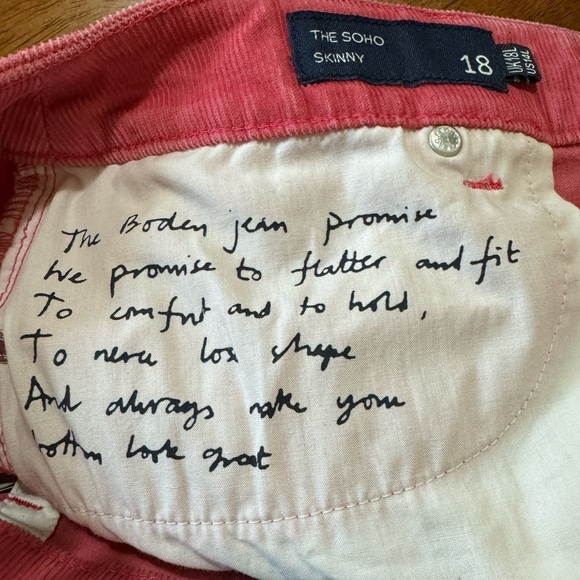 THE SOHO
SKINNY
18
UK18L
US14L
The Boden jean promise
We promise to flatter and fit
To comfort and to hold,
To never lose shape
And always make your
bottom look great